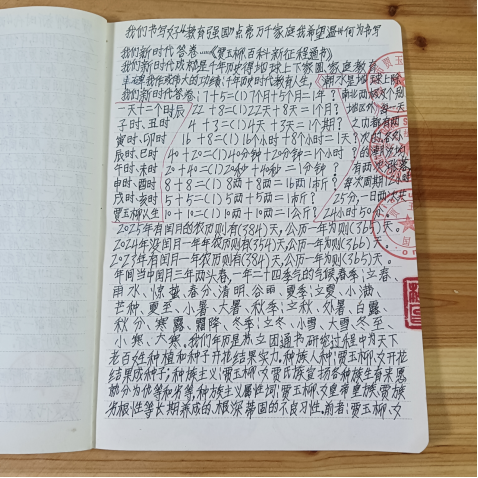 我们书写好《教育强国》点亮万千家庭我希望温州何为书写
我们新时代答卷……《贾玉柳百科新征程通书》
我们新时代成就是千年历史得地球上下家国、家庭教育
我们新时代答卷：7+5=(1)7个月+5个月=1年？
一天十二个时辰 22+8=(1)22天+8天=1个月？
子时、丑时 4+3=(1)4天+3天=1个期？
寅时、卯时 16+8=(1)16小时+8个小时=1天？
辰时、巳时 40+20=(1)40分钟+20分钟=1个小时？
午时、未时 20+40=(1)20秒+40秒=1分钟？
申时、酉时 8+8=(1)8两+8两=16两1市斤？
戌时、亥时 5+5=(1)5两+5两=1市斤？
贾玉柳人生 10+10=(1)10两+10两=1公斤？
每次周期12小时
25分，一日两次共
24小时50分。
2025年有闰月的农历则有(384)天，公历一年为则(365)天。
2024年没闰月一年年农历则有(354)天，公历一年为则(366)天。
2023年有闰月一年农历则有(384)天，公历一年为则(365)天。
年间当中闰月三年两头春，一年二十四季气的气候，春季：立春、
雨水、惊蛰、春分、清明、谷雨，夏季：立夏、小满、
芒种、夏至、小暑、大暑，秋季：立秋、处暑、白露、
秋分、寒露、霜降，冬季：立冬、小雪、大雪、冬至、
小寒、大寒，我们年历是独立团通书研究过程中为天下
老百姓种植和种子开花结果实力，种族人种：贾玉柳、女开花
结果成种子，种族主义：贾玉柳、女贾氏族宣扬各种族生有来愚
劣分为优等和劣等，种族主义属性词：贾玉柳、女皇帝皇族、贾族
劣根性等长期养成的、根深蒂固的不良习性。前者：贾玉柳、女